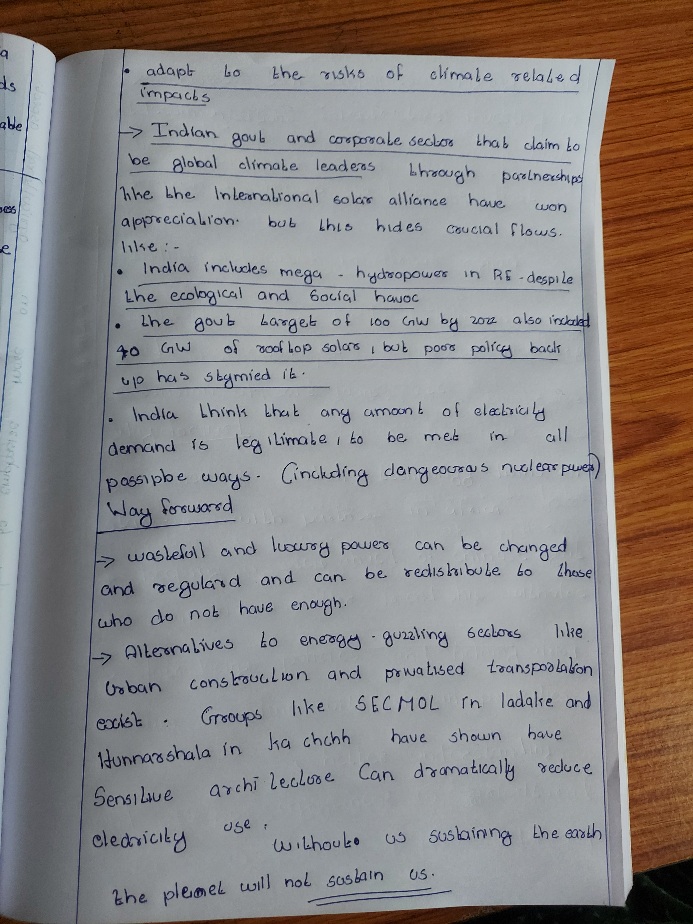 a
ds
able
ess
e
• adapt to the risks of climate related
impacts
→ Indian govt and corporate sector that claim to
be global climate leaders through partnerships
like the International solar alliance have won
appreciation. but this hides crucial flows.
like :-
• India includes mega - hydropower in RE - despite
the ecological and social havoc
• the govt target of 100 GW by 2022 also included
40 GW of rooftop solar, but poor policy back
up has stymied it.
• India think that any amount of electricity
demand is legitimate, to be met in all
possipbe ways. (including dangeourous nuclear power)
Way forward
→ wastefull and luxury power can be changed
and regulard and can be redistribute to those
who do not have enough.
→ Alternatives to energy - guzzling sectors like
Urban construction and privatised transportation
exist. Groups like SECMOL in ladake and
Hunnarshala in ka chchh have shown have
Sensitive architecture Can dramatically reduce
electricity use.
without us sustaining the earth
the planet will not sustain us.